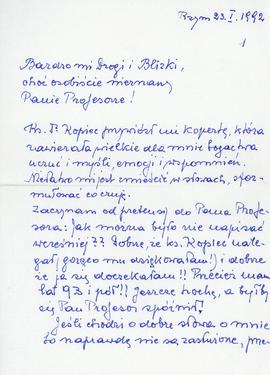 Rzym 23. I. 1992
1
Bardzo mi Drogi i Bliski,
choć osobiście nieznany
Panie Profesorze!
Ks. P. Kopiec przywiózł mi kopertę, która
zawierała wielkie dla mnie bogactwa
uczuć i myśli, emocji i wspomnień.
Niełatwo mi jest zmieścić w słowach, sfor-
mułować co czuję.
Zaczynam od pretensji do Pana Profe-
sora: Jak można było nie napisać
wcześniej?? Dobrze, że ks. Kopiec nale-
gał (gorąco mu dziękowałam!) i dobrze
że ja się doczekałam!! Przecież mam
lat 93 i pół!! Jeszcze trochę, a byłby
się Pan Profesor spóźnił.
Jeśli chodzi o dobre słowa o mnie
to naprawdę nie są zasłużone, prze-